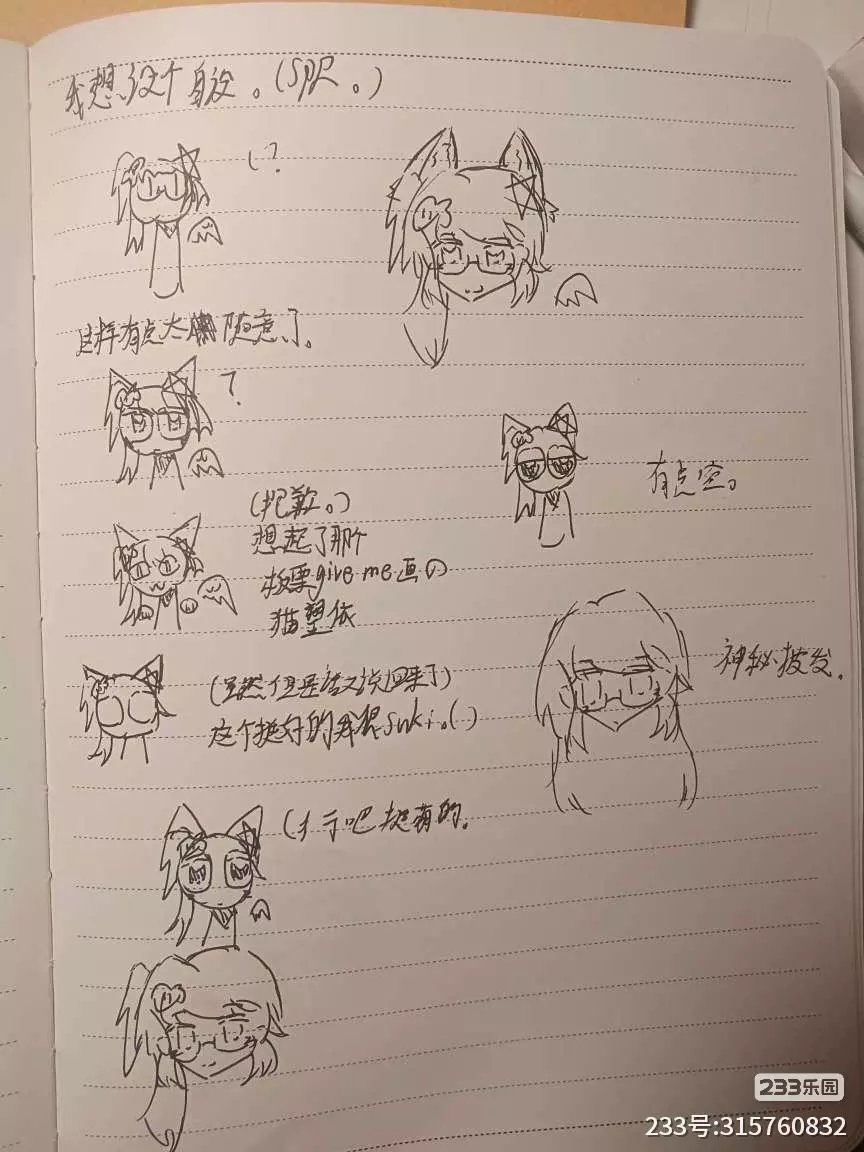 我想设个自设。(SPR。)
(?
这样有点太随意了。
?
有点空。
(抱歉。)
想起了那个
板票give me画の
猫望依
神秘披发.
(虽然但是话又说回来了)
这个挺好的我很suki。()
(行吧挺萌的.
233乐园
233号:315760832